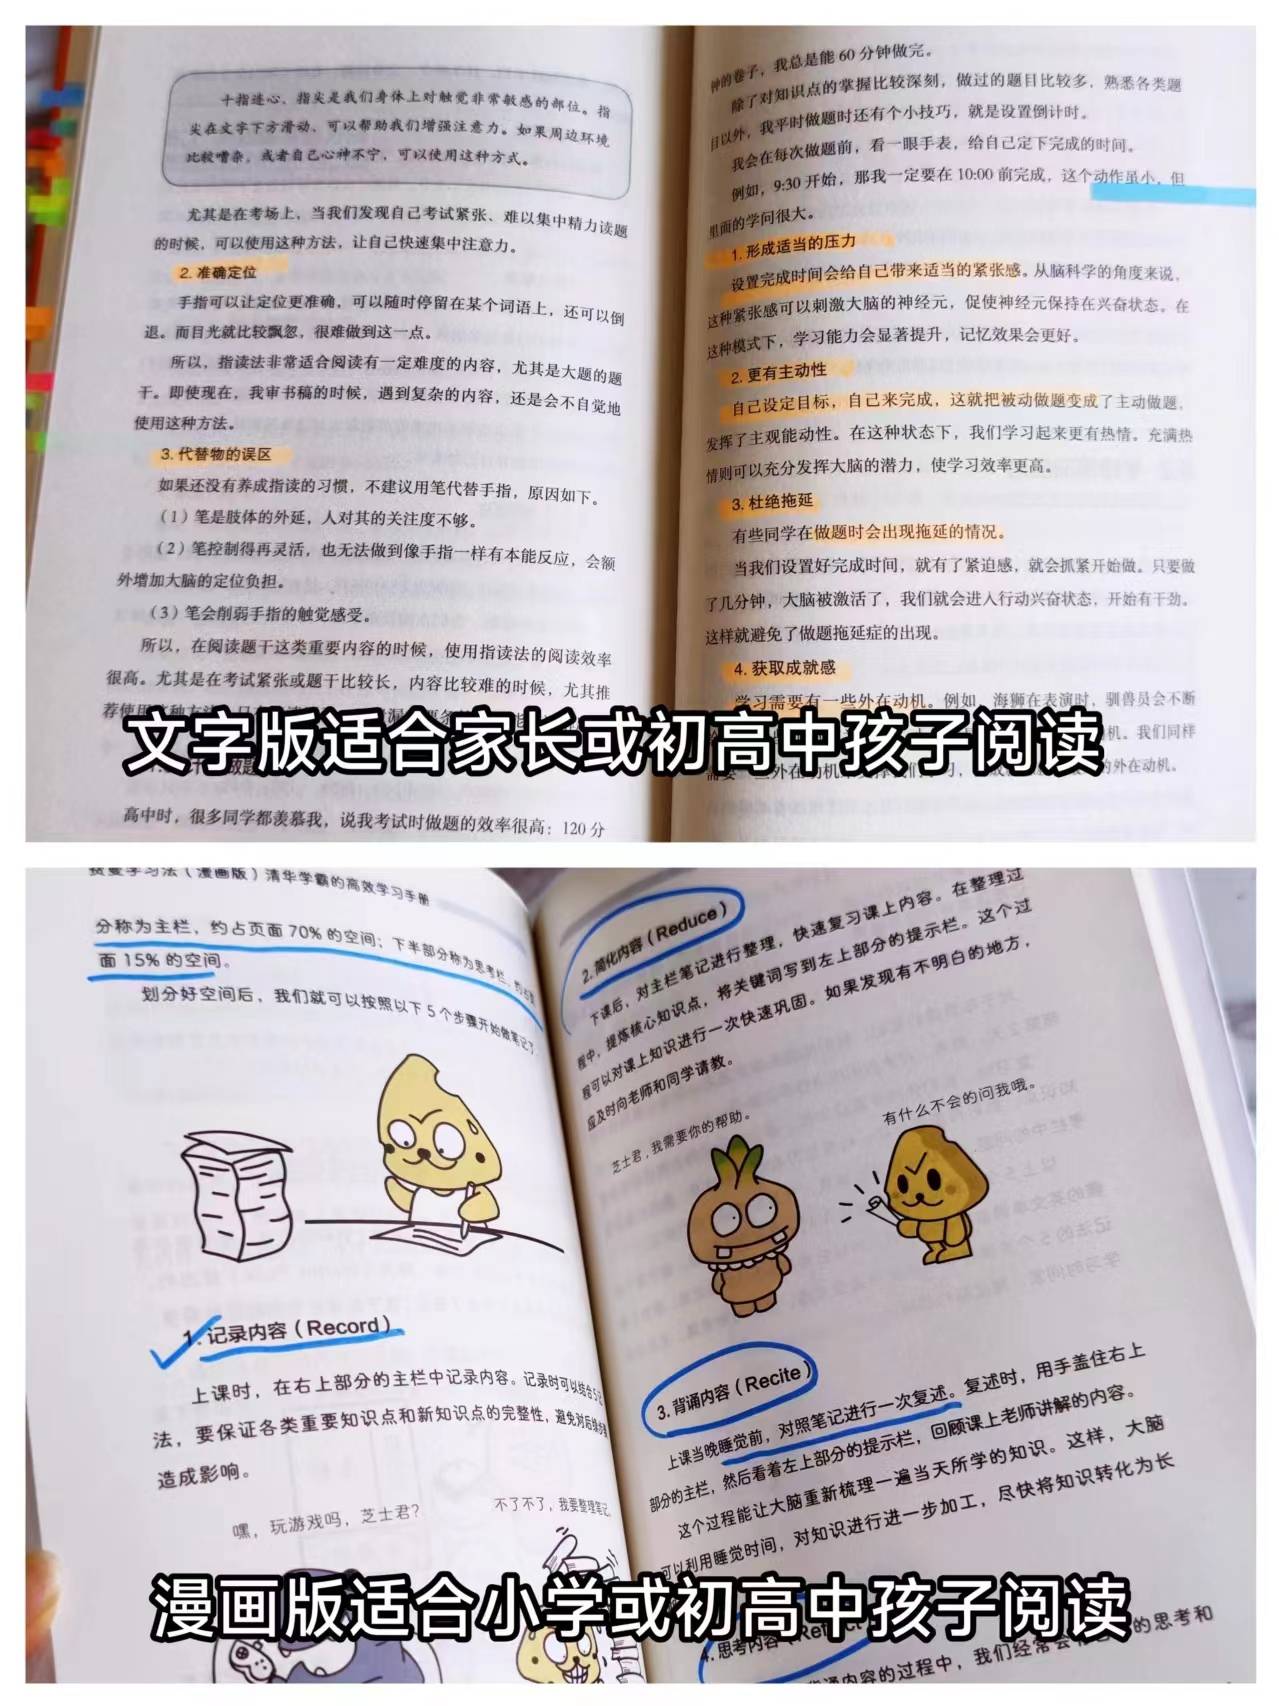 十指连心、指尖是我们身体上对触觉非常敏感的部位。指
尖在文字下方滑动、可以帮助我们增强注意力。如果周边环境
比较嘈杂，或者自己心神不宁，可以使用这种方式。
尤其是在考场上，当我们发现自己考试紧张、难以集中精力读题
的时候，可以使用这种方法，让自己快速集中注意力。
2. 准确定位
手指可以让定位更准确，可以随时停留在某个词语上，还可以倒
退。而目光就比较飘忽，很难做到这一点。
所以，指读法非常适合阅读有一定难度的内容，尤其是大题的题
干。即使现在，我审书稿的时候，遇到复杂的内容，还是会不自觉地
使用这种方法。
3. 代替物的误区
如果还没有养成指读的习惯，不建议用笔代替手指，原因如下。
（1）笔是肢体的外延，人对其的关注度不够。
（2）笔控制得再灵活，也无法做到像手指一样有本能反应，会额
外增加大脑的定位负担。
（3）笔会削弱手指的触觉感受。
所以，在阅读题干这类重要内容的时候，使用指读法的阅读效率
很高。尤其是在考试紧张或题干比较长，内容比较难的时候，尤其推
荐使用
高中时，很多同学都羡慕我，说我考试时做题的效率很高：120 分
钟的卷子，我总是能 60 分钟做完。
除了对知识点的掌握比较深刻，做过的题目比较多，熟悉各类题
目以外，我平时做题时还有个小技巧，就是设置倒计时。
我会在每次做题前，看一眼手表，给自己定下完成的时间。
例如，9:30 开始，那我一定要在 10:00 前完成，这个动作虽小，但
里面的学问很大。
1. 形成适当的压力
设置完成时间会给自己带来适当的紧张感。从脑科学的角度来说，
这种紧张感可以刺激大脑的神经元，促使神经元保持在兴奋状态。在
这种模式下，学习能力会显著提升，记忆效果会更好。
2. 更有主动性
自己设定目标，自己来完成，这就把被动做题变成了主动做题，
发挥了主观能动性。在这种状态下，我们学习起来更有热情。充满热
情则可以充分发挥大脑的潜力，使学习效率更高。
3. 杜绝拖延
有些同学在做题时会出现拖延的情况。
当我们设置好完成时间，就有了紧迫感，就会抓紧开始做。只要做
了几分钟，大脑被激活了，我们就会进入行动兴奋状态，开始有干劲。
这样就避免了做题拖延症的出现。
4. 获取成就感
学习需要有一些外在动机。例如，海狮在表演时，驯兽员会不断
机。我们同样
的外在动机。
文字版适合家长或初高中孩子阅读
费曼学习法（漫画版）清华学霸的高效学习手册
分称为主栏，约占页面 70% 的空间；下半部分称为思考栏，约占页
面 15% 的空间。
划分好空间后，我们就可以按照以下 5 个步骤开始做笔记了。
1. 记录内容（Record）
上课时，在右上部分的主栏中记录内容。记录时可以结合5
法，要保证各类重要知识点和新知识点的完整性，避免对后续步骤
造成影响。
嘿，玩游戏吗，芝士君？
不了不了，我要整理笔记
2. 简化内容（Reduce）
下课后，对主栏笔记进行整理，快速复习课上内容。在整理过
程中，提炼核心知识点，将关键词写到左上部分的提示栏。这个过
程可以对课上知识进行一次快速巩固。如果发现有不明白的地方，
应及时向老师和同学请教。
芝士君，我需要你的帮助。
有什么不会的问我哦。
3. 背诵内容（Recite）
上课当晚睡觉前，对照笔记进行一次复述。复述时，用手盖住右上
部分的主栏，然后看着左上部分的提示栏，回顾课上老师讲解的内容。
这个过程能让大脑重新梳理一遍当天所学的知识。这样，大脑
可以利用睡觉时间，对知识进行进一步加工，尽快将知识转化为长
4. 思考内容
内容的过程中，我们经常会
的思考和
漫画版适合小学或初高中孩子阅读